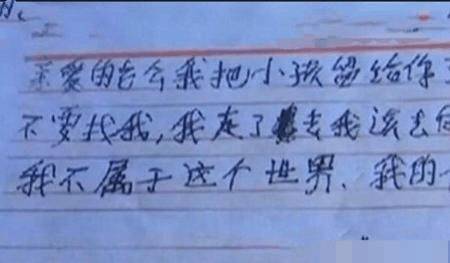 亲爱的老公我把小孩留给你
不要找我,我走了去我该去
我不属于这个世界、我的